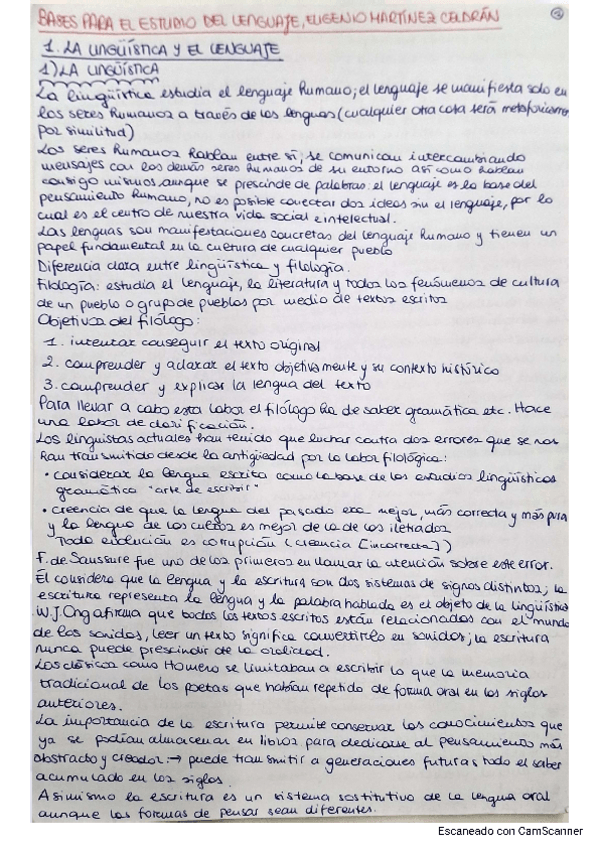 BASES PARA EL ESTUDIO DEL LENGUAJE, EUGENIO MARTÍNEZ CELDRÁN
1. LA LINGÜÍSTICA Y EL LENGUAJE
1) LA LINGÜÍSTICA
La lingüística estudia el lenguaje humano; el lenguaje se manifiesta solo en
los seres humanos a través de las lenguas (cualquier otra cosa será metaforismo
por similitud)
Los seres humanos hablan entre sí, se comunican intercambiando
mensajes con los demás seres humanos de su entorno así como hablan
consigo mismos aunque se prescinde de palabras: el lenguaje es la base del
pensamiento humano, no es posible conectar dos ideas sin el lenguaje, por lo
cual es el centro de nuestra vida social e intelectual.
Las lenguas son manifestaciones concretas del lenguaje humano y tienen un
papel fundamental en la cultura de cualquier pueblo
Diferencia clara entre lingüística y filología.
Filología: estudia el lenguaje, la literatura y todos los fenómenos de cultura
de un pueblo o grupo de pueblos por medio de textos escritos
Objetivos del filólogo:
1. intentar conseguir el texto original
2. comprender y aclarar el texto objetivamente y su contexto histórico
3. comprender y explicar la lengua del texto
Para llevar a cabo esta labor el filólogo ha de saber gramática etc. Hace
una labor de clarificación.
Los linguistas actuales han tenido que luchar contra dos errores que se nos
han transmitido desde la antigüedad por la labor filológica:
• considerar la lengua escrita como la base de los estudios lingüísticos
gramática "arte de escribir"
• creencia de que la lengua del pasado era mejor, más correcta y más pura
y la lengua de los cultos es mejor de la de los iletrados
Toda evolución es corrupción (creencia [incorrecta])
F. de Saussure fue uno de los primeros en llamar la atención sobre este error.
Él considera que la lengua y la escritura son dos sistemas de signos distintos; la
escritura representa la lengua y la palabra hablada es el objeto de la lingüística
W.J. Ong afirma que todos los textos escritos están relacionados con el mundo
de los sonidos, leer un texto significa convertirlo en sonidos; la escritura
nunca puede prescindir de la oralidad.
Los clásicos como Homero se limitaban a escribir lo que la memoria
tradicional de los poetas que habían repetido de forma oral en los siglos
anteriores.
La importancia de la escritura permite conservar los conocimientos que
ya se podían almacenar en libros para dedicarse al pensamiento más
abstracto y creador: → puede transmitir a generaciones futuras todo el saber
acumulado en los siglos.
Asimismo la escritura es un sistema sustitutivo de la lengua oral
aunque las formas de pensar sean diferentes.
Escaneado con CamScanner